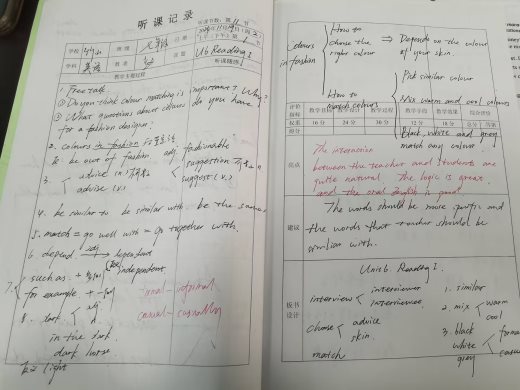 听课记录
听课节数:第 11 节
学校
班级
日期
学科 英语
姓名
课题 U6 Reading I
教学主要过程
听课随感
1. Free talk
① Do you think colour matching is important? Why?
② What questions about colours do you have
for a fashion designer?
2. colours in fashion
& be out of fashion adj. fashionable
3. advice un. suggestion
advise (v.) suggest (v.)
4. be similar to be similar with be the same
5. match = go well with = go together with.
6. depend dependent
independent
7. such as +
for example +
formal — informal
casual — casually
8. dark adj.
n.
in the dark
dark horse
light
Colours in fashion
How to choose the right colour ⇒ Depends on the colour of your skin
How to match colours
Pick similar colour
Mix warm and cool colours
Black, white and grey match any colour
评价指标 教学目标 教学设计 教学过程 教学手段 教学效果 综合评价
权重 16分 24分 30分 12分 18分 总分 等第
得分
亮点
The interaction
between the teacher and students are
quite natural. The logic is great
and the oral English is good.
建议
The words should be more specific and
the words that teacher should be
familiar with.
板书设计
Unit6 Reading I.
interview interviewer
interviewee
choose advice
skin
match
1. similar
2. mix warm
cool
3. black
white
grey